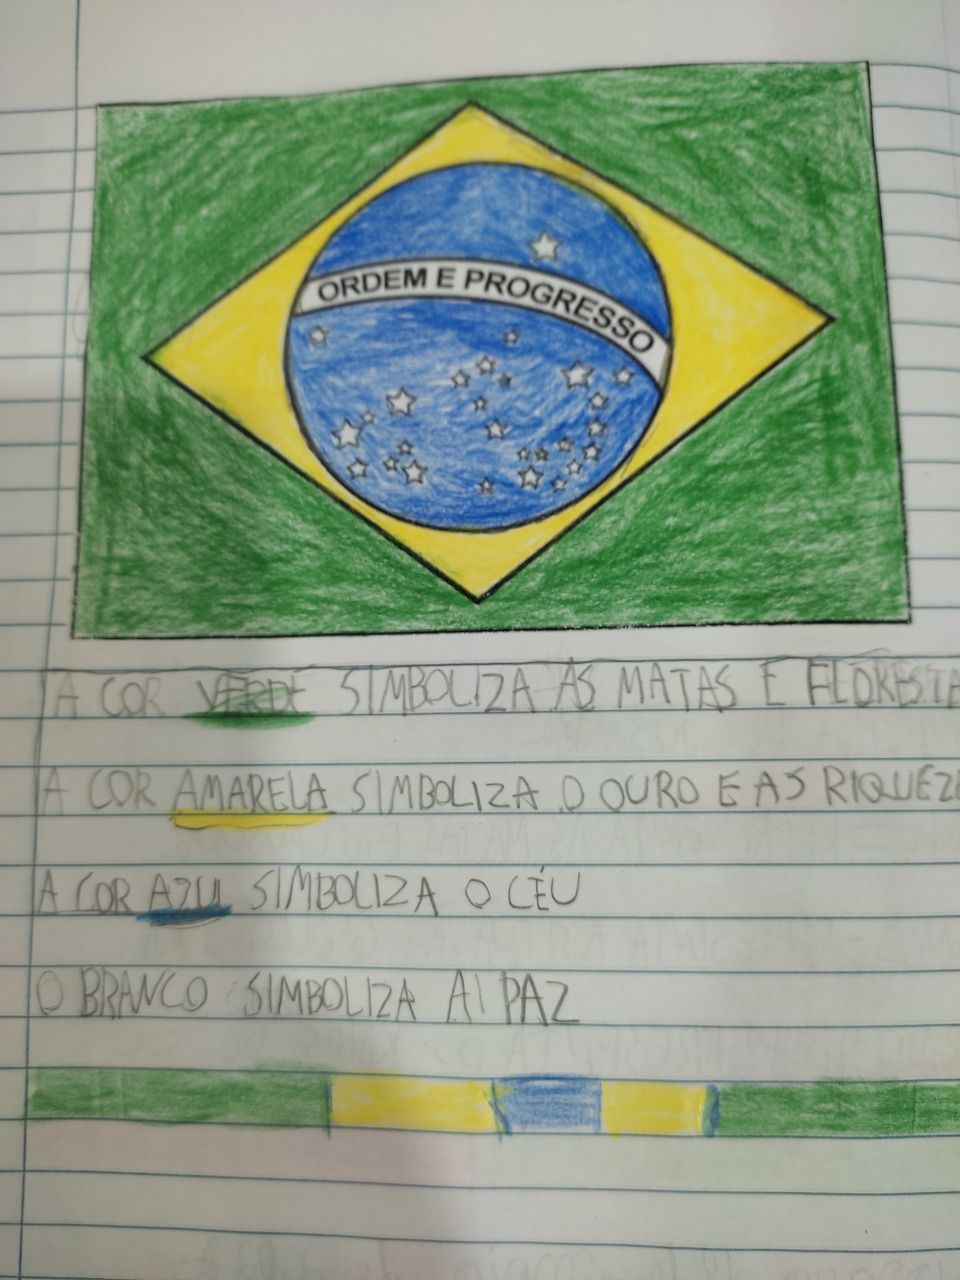 ORDEM E PROGRESSO
A COR VERDE SIMBOLIZA AS MATAS E FLORESTA
A COR AMARELA SIMBOLIZA O OURO E AS RIQUEZE
A COR AZUL SIMBOLIZA O CÉU
O BRANCO SIMBOLIZA A PAZ